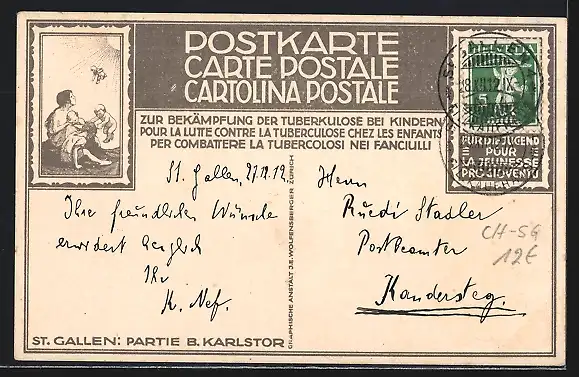 POSTKARTE
CARTE POSTALE
CARTOLINA POSTALE
ZUR BEKÄMPFUNG DER TUBERKULOSE BEI KINDERN
POUR LA LUTTE CONTRE LA TUBERCULOSE CHEZ LES ENFANTS
PER COMBATTERE LA TUBERCOLOSI NEI FANCIULLI
FÜR DIE JUGEND
POUR
LA JEUNESSE
PRO JOVENTU
St. Gallen, 27.12.12.
Ihre freundlichen Wünsche
erwidert herzlich
Ihr
K. Nef.
GRAPHISCHE ANSTALT J.E. WOLFENSBERGER ZÜRICH
Herrn
Ruedi Stadler
Postbeamter
Kandersteg.
CH-SG
12€
ST. GALLEN: PARTIE B. KARLSTOR